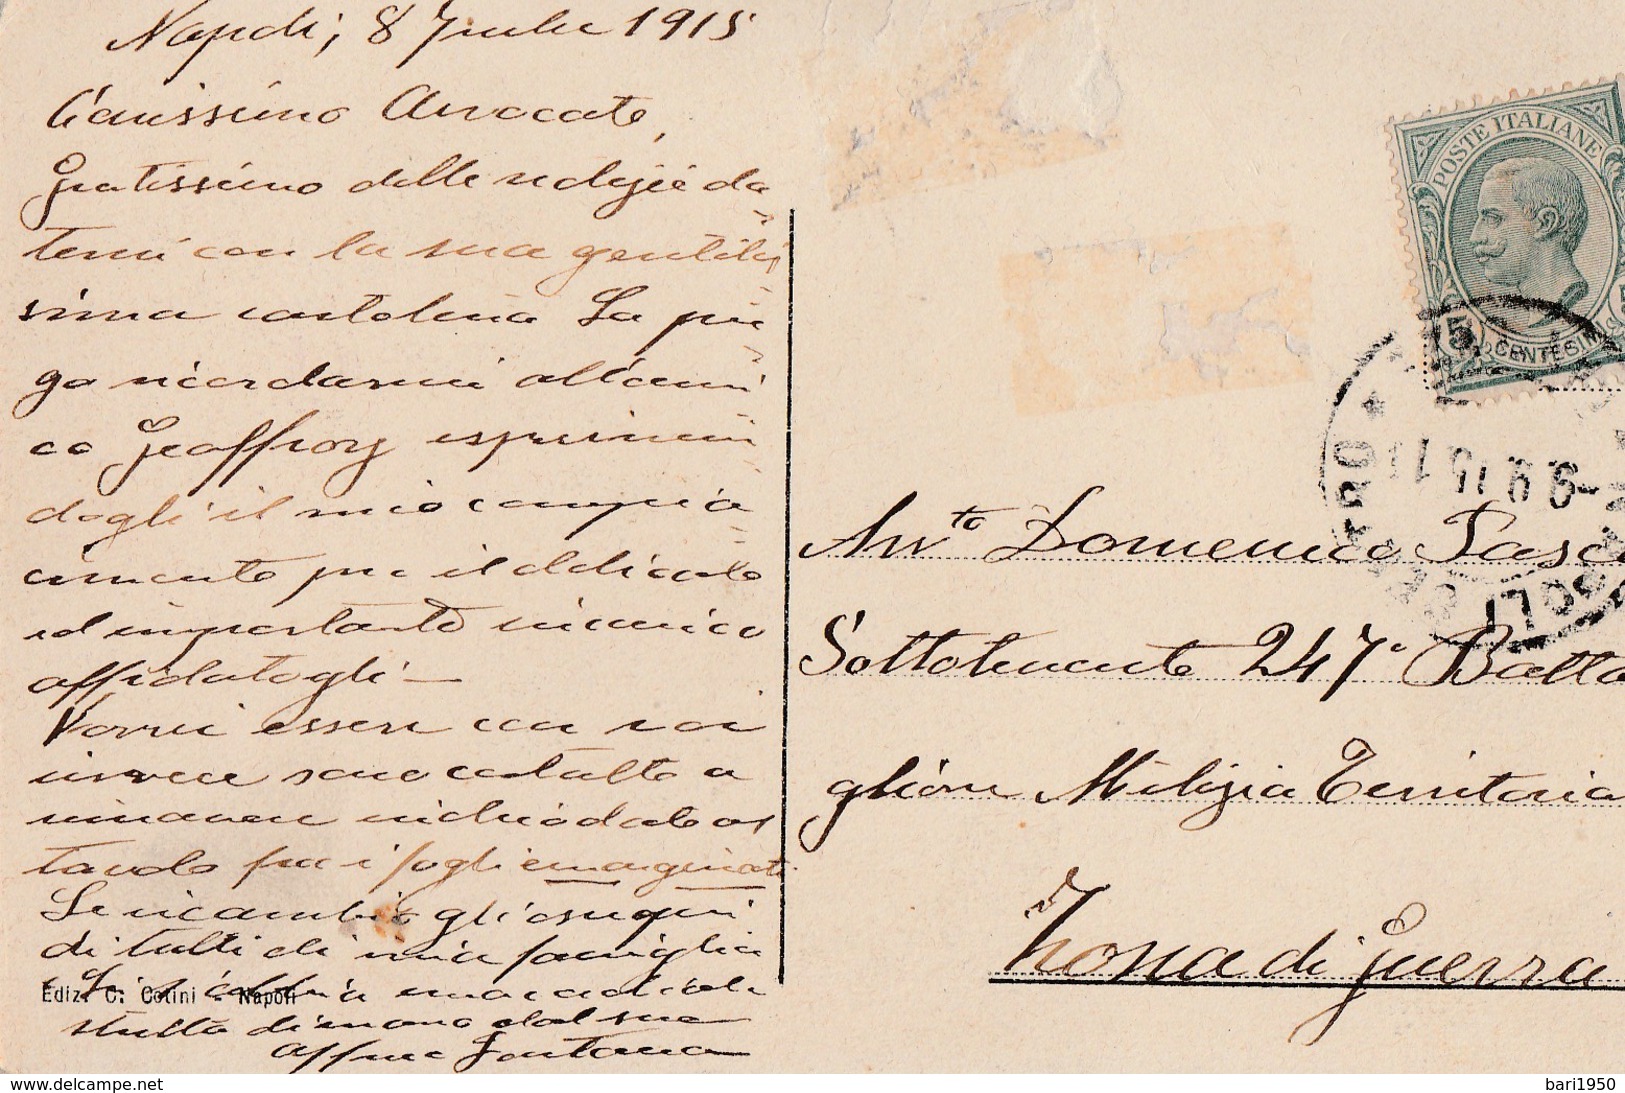 Napoli, 8 7mbre 1915
Carissimo Avvocato,
Gratissimo delle notizie da-
temi con la sua gentilis
sima cartolina La pre-
go ricordarmi all'ami-
co Geoffroy esprimen-
dogli il mio compia-
cimento per il delicato
ed importante incarico
affidatogli —
Vorrei essere con voi
invece sono costretto a
rimanere inchiodato al
tavolo per i fogli emarginati.
Le ricambio gli ossequi
di tutti di mia famiglia
Le una cordiale
stretta di mano dal suo
affmo Fontana
Ediz. C. Cotini - Napoli
POSTE ITALIANE
5 CENTESIMI
9 9 15 11
NAPOLI
Avv.to Domenico Pasca
Sottotenente 247° Batta
glione Milizia Territoria
Zona di guerra
www.delcampe.net
bari1950